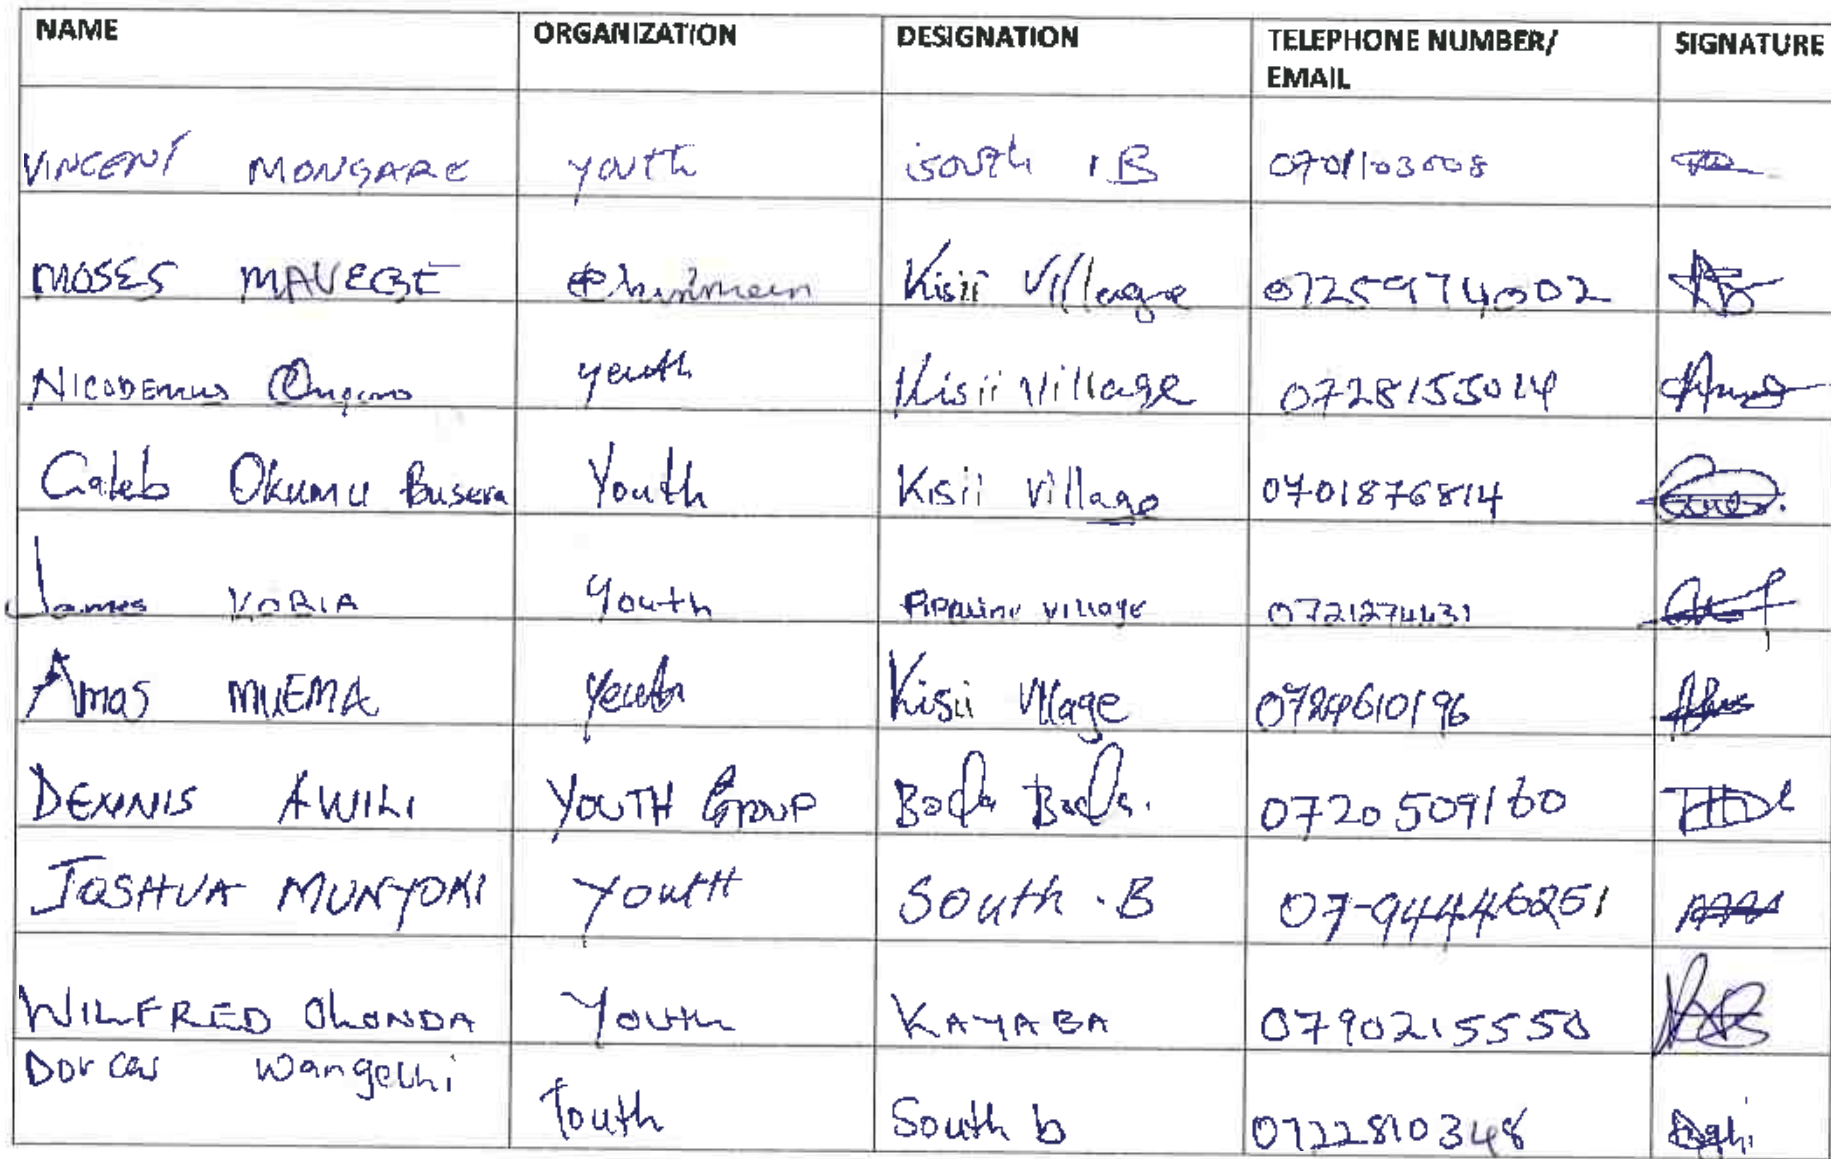 NAME ORGANIZATION DESIGNATION TELEPHONE NUMBER/ EMAIL SIGNATURE
VINCENT MONGARE youth south B 0701103008
MOSES MAVEGE Chairman Kisii Village 0725974002
NICODEMUS Ongeno youth Kisii Village 0728155014
Caleb Okumu Busera Youth Kisii Village 0701876814
James KORIA Youth Pipeline village 0721274431
Amos MUEMA Youth Kisii Village
DENNIS AWILI YOUTH GROUP Boda Boda. 0720509160
JOSHUA MUNYOKI YoutH South .B 07-94446251
WILFRED OKONDA Youth KAYABA 0790215550
Dorcas Wangechi
Youth South b 0722810348